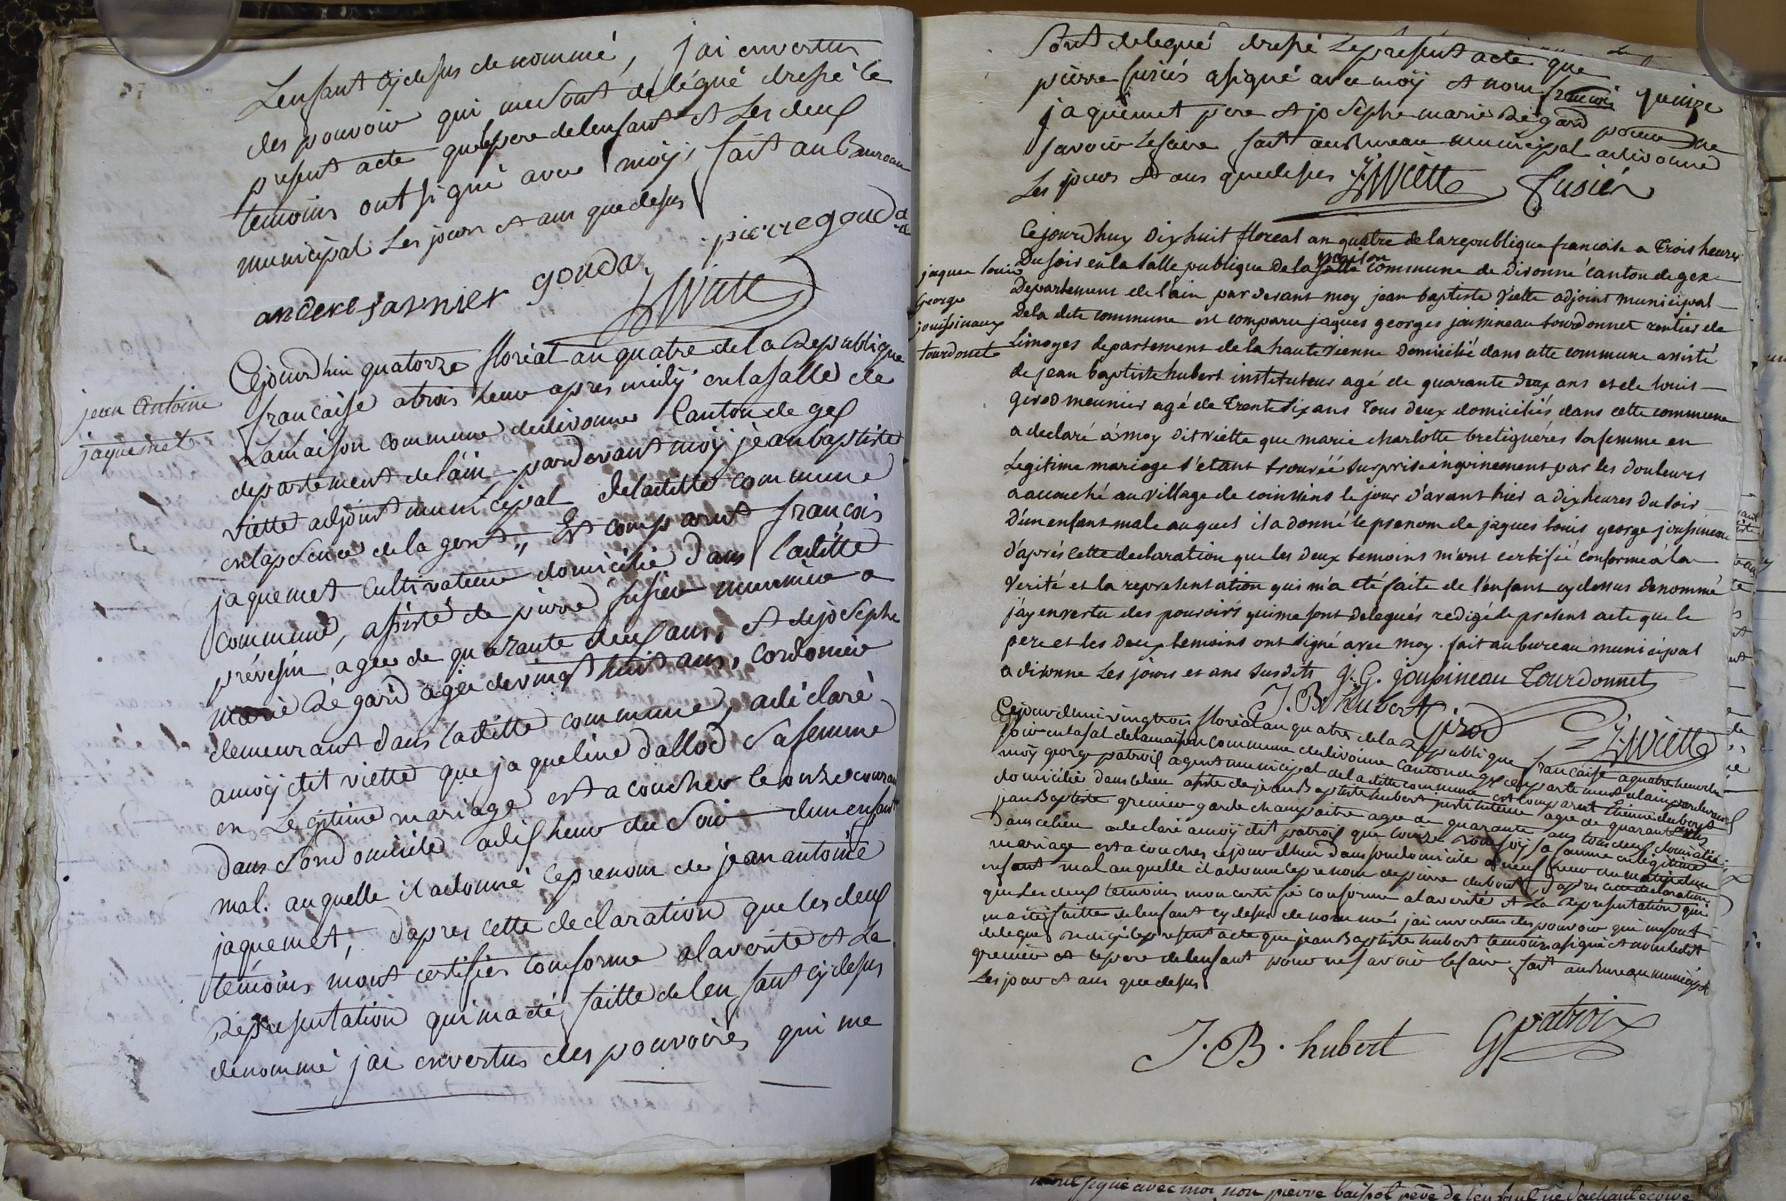 Lenfant cy desus denommé, jai envertus
des pouvoir qui me sont delégué dressé le
present acte que le pere delenfant et Les deux
temoins ont signé avec moy, fait au Bureau
municipal Les jours et ans que desus
pierre gouda
andere garnier gouda
JBViette
jean Antoine
jaquemet
Cejourdhui quatorze floréal an quatre de la Republique
francaise a trois heure apres midy en la salle de
La maison commune de divonne Canton de gex
departement de lain pardevant moy jean baptiste
viette adjoint municipal deladitte commune
en lapsence de la gent, Est comparut francois
jaquemet cultivateur domicilié dans laditte
commune, assisté de pierre fusier meunier a
prévesin agée de quarante deux ans, et de joseph
marie Degard agée de vingt huit ans, cordonier
demeurant dans laditte commune, adéclaré
amoy dit viette que jaqueline dallod sa femme
en Legitime mariage est acoucher le onze courant
dans son domicile adix heure du Soir dun enfant
mal. auquelle il adonné le prenom de jean antoine
jaquemet, dapres cette declaration que les deux
temoins mont certifiér comforme ala verité et La
Representation qui ma été faitte de lenfant cy desus
denommé jai envertus des pouvoires qui me
sont delegué dressé Le present acte que
pierre fusiés asigné avec moy et nom francois
jaquemet pere et joseph marie Degard pour ne
savoir Lefaire fait au Bureau municipal adivonne
Les jours et ans que desus JBViette fusier
jaques louis
George
joussinaux
tourdonet
Cejourdhuy dix huit floreal an quatre de la republique francoise a trois heures
du soir en la salle publique de la maison commune de divonne canton de gex
Departement de l'ain par devant moy jean baptiste viette adjoint municipal
dela dite commune est comparu jaques georges joussineau tourdonnet rentier de
Limoges departement de la haute vienne domicilié dans cette commune assisté
de jean baptiste hubert instituteur agé de quarante deux ans et de louis
girod meunier agé de trente six ans tous deux domiciliés dans cette commune
a declaré a moy dit viette que marie charlotte bretignéres sa femme en
Legitime mariage s'etant trouvée surprise inopinement par les douleurs
a accouché au village de coinsins le jour d'avant hier a dix heures du soir
d'un enfant male auquel il a donné le prenom de jaques louis george joussineau
d'aprés cette declaration que les deux temoins m'ont certifié conforme à la
verité et la representation qui m'a été faite de l'enfant cy dessus denommé
j'ay en vertu des pouvoirs qui me sont delegués redigé le présent acte que le
pere et les deux temoins ont signé avec moy. fait au bureau municipal
a divonne Les jours et ans susdits J. G. joussineau Tourdonnet
J. B. hubert girod JBViette
Cejourdhui vingt trois floréal an quatre de la Republique francaise a quatre heure du
soir en la sal de la maison commune de divonne canton de gex departement de lain pardevant
moy george patroix agent municipal de la ditte commune est comparut Etienne dubout
domicilié dans celieu asisté de jean Baptiste hubert instituteur agee de quarante deux ans
jean Baptiste grenier garde champaitre agee de quarante ans tous deux domicilié
dans celieu adeclaré amoy dit patroix que sa famme en legitime
mariage est acouchés cejourdhui dans son domicile a neuf heure du matin dun
enfant mal auquelle il adonné le prenom de pierre dubout dapres cette declaration
que Les deux temoins mon certifié conforme ala verité et La Representation qui
ma été faitte de lenfant cy desus denommé jai envertus des pouvoir qui me sont
delegués redigé le present acte que jean Baptiste hubert temoin asigné et non ledit
grenier et le pere de lenfant pour ne savoir le faire fait au Bureau municipal
Les jour et ans que desus
J. B. hubert G patroix